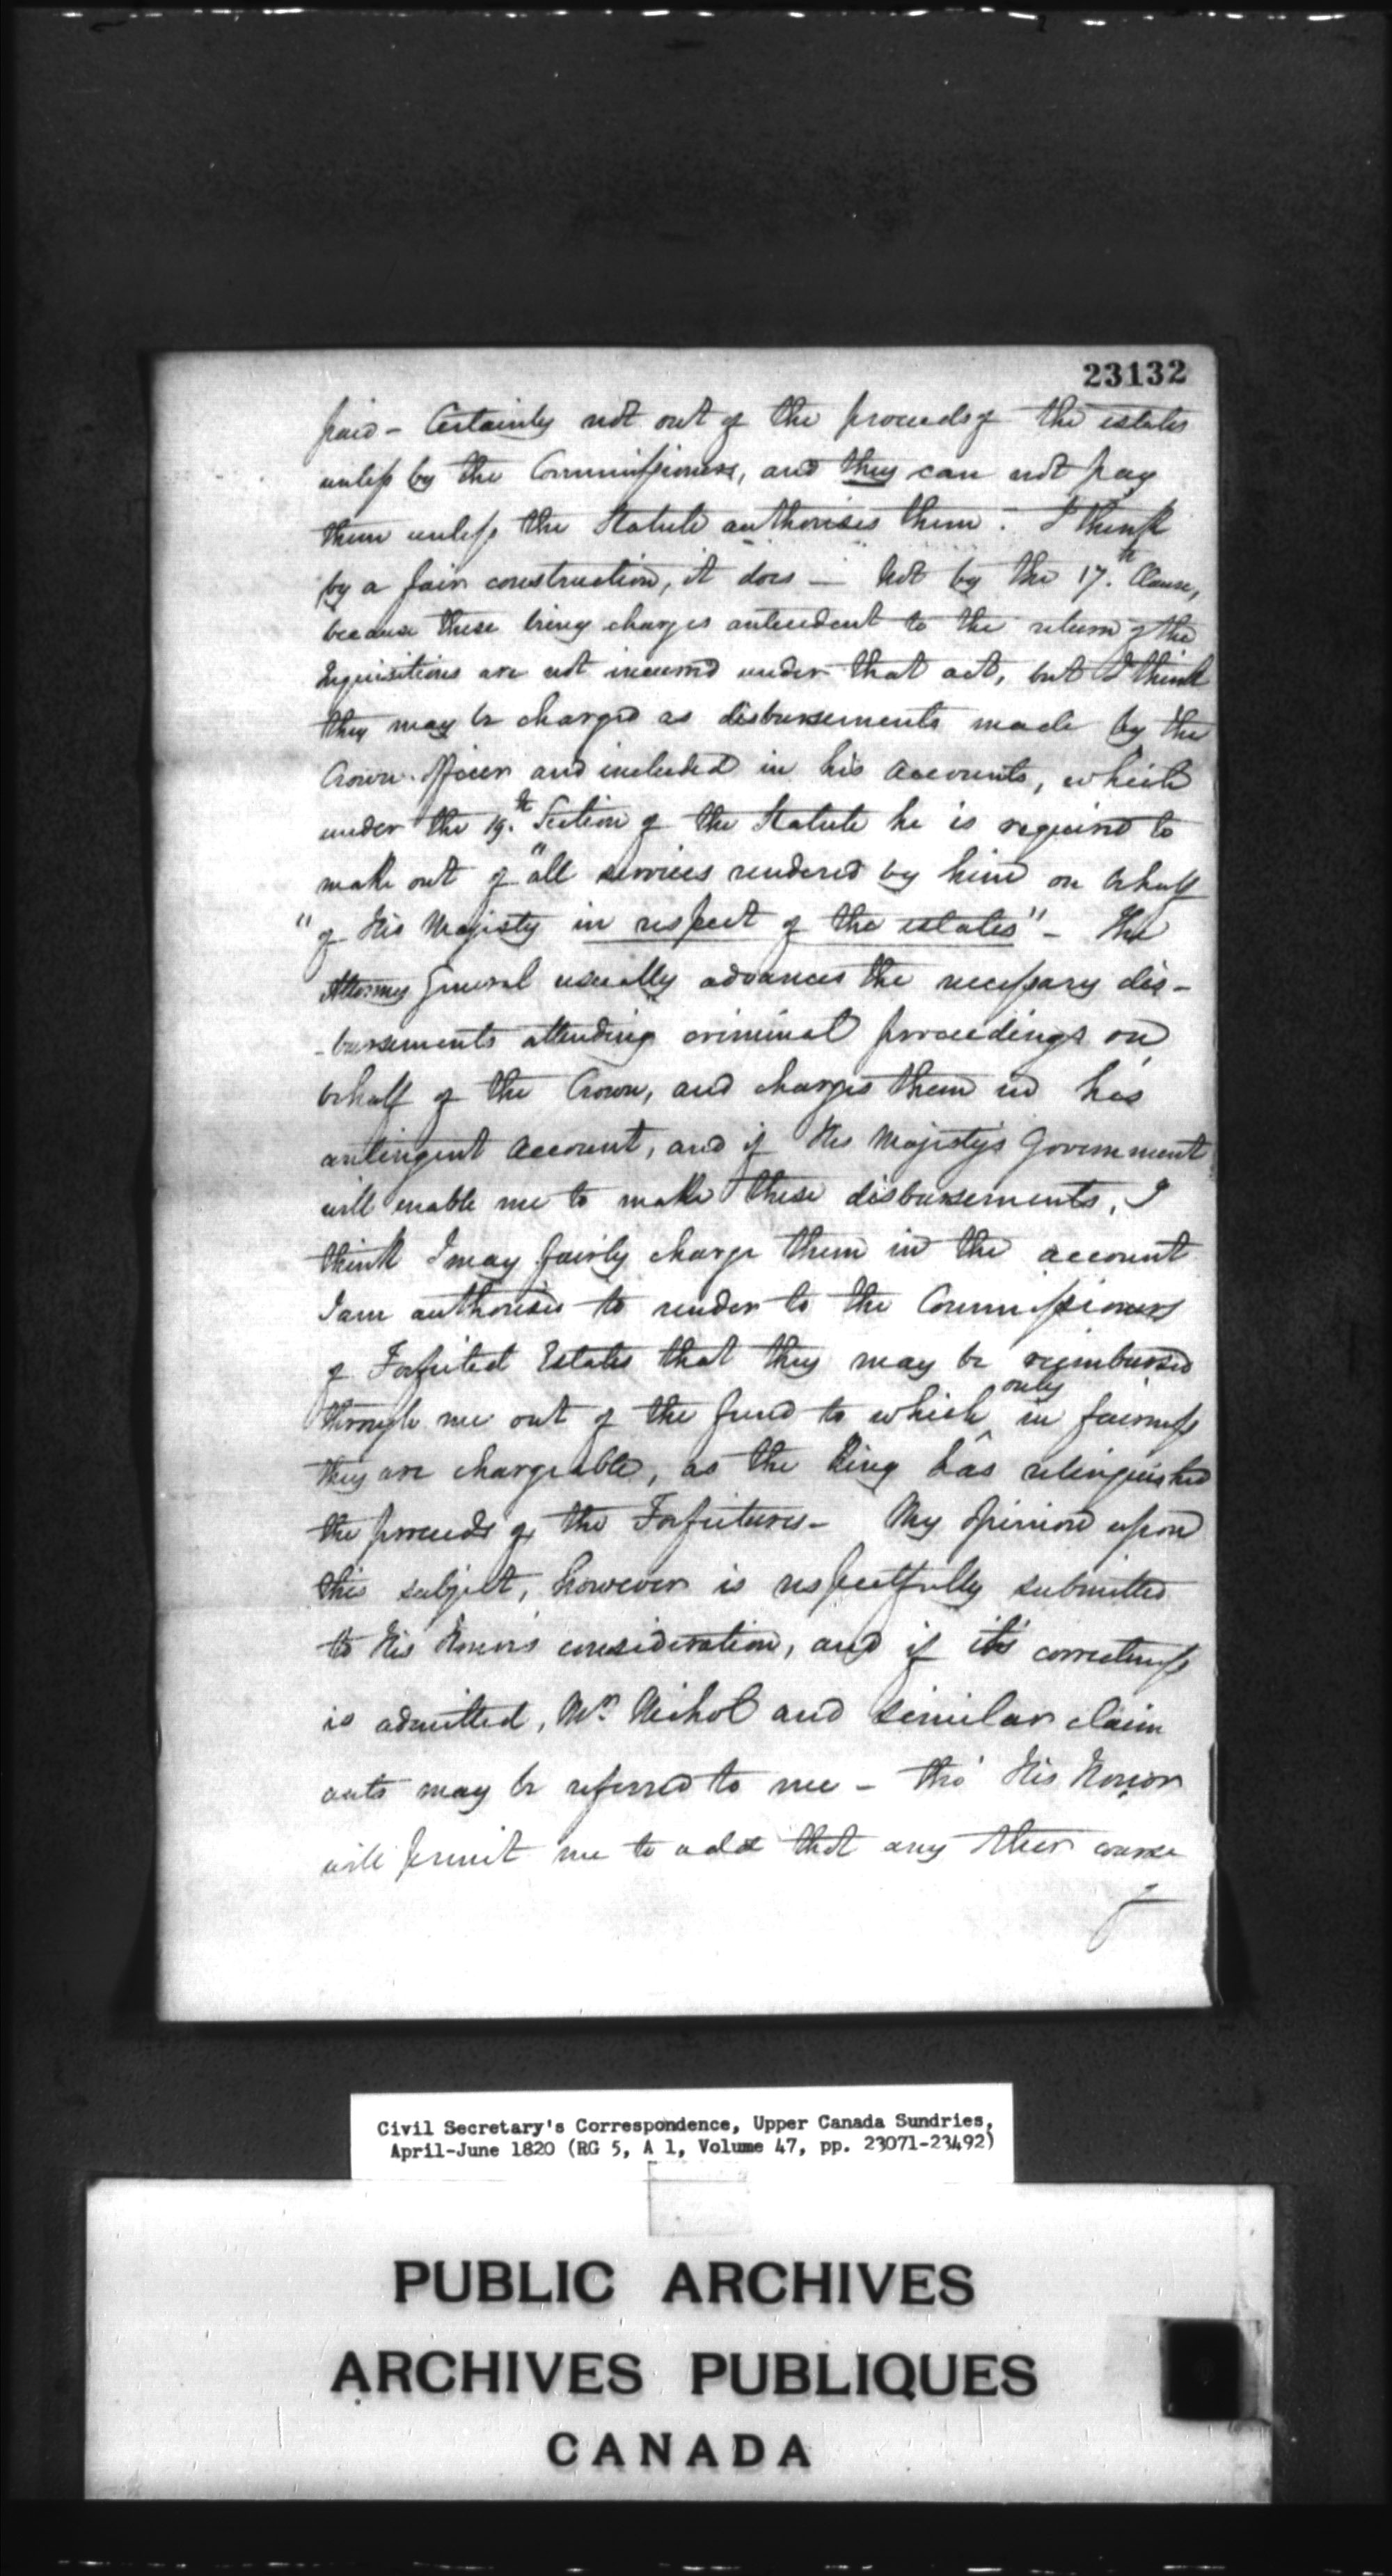 23132
paid - Certainly not out of the proceeds of the estates
unless by the Commissioners, and they can not pay
them unless the Statute authorises them. I think
by a fair construction, it does — Not by the 17.th Clause,
because these being charges antecedent to the return of the
Inquisitions are not incurred under that act, but I think
they may be charged as disbursements made by the
Crown Officer and included in his Accounts, which
under the 19.th Section of the Statute he is required to
make out of "all services rendered by him on behalf
" of His Majesty in respect of the estates" - The
Attorney General usually advances the necessary dis-
-bursements attending criminal proceedings on
behalf of the Crown, and charges them in his
contingent Account, and if His Majesty's Government
will enable me to make these disbursements, I
think I may fairly charge them in the account
I am authorised to render to the Commissioners
of Forfeited Estates that they may be reimbursed
through me out of the fund to which only in fairness
they are chargeable, as the King has relinquished
the proceeds of the Forfeitures - My Opinion upon
this subject, however is respectfully submitted
to His Honor's consideration, and if it's correctness
is admitted, Mr. Nichol and similar claim
ants may be referred to me - tho' His Honor
will permit me to add that any other course
of
Civil Secretary's Correspondence, Upper Canada Sundries,
April-June 1820 (RG 5, A 1, Volume 47, pp. 23071-23492)
PUBLIC ARCHIVES
ARCHIVES PUBLIQUES
CANADA